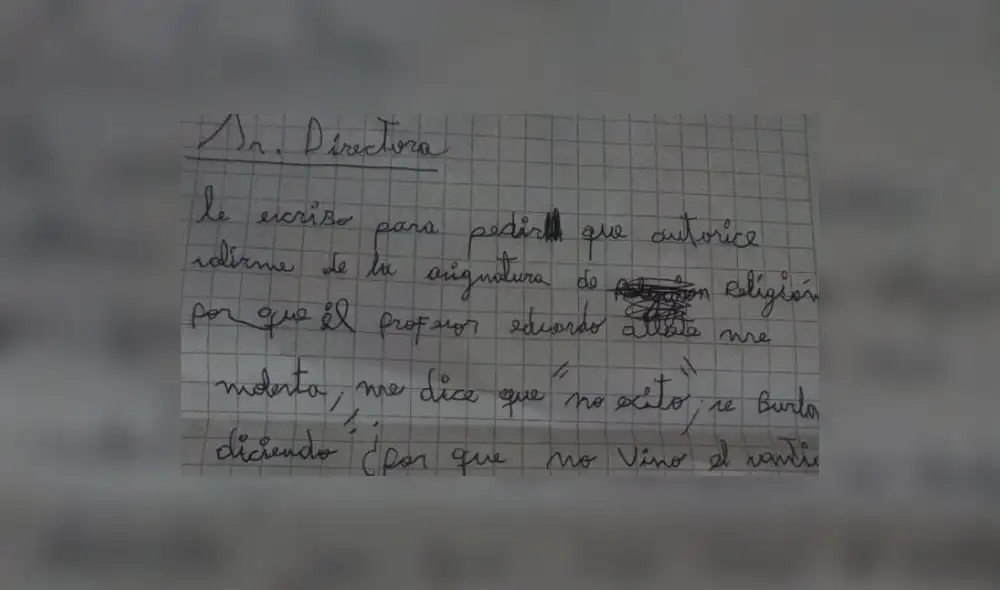 Sr. Directora
le escribo para pedir que autorice
salirme de la asignatura de Religión
por que él profesor eduardo me
molesta, me dice que "no exito", se Burla
diciendo "¿por que no vino el